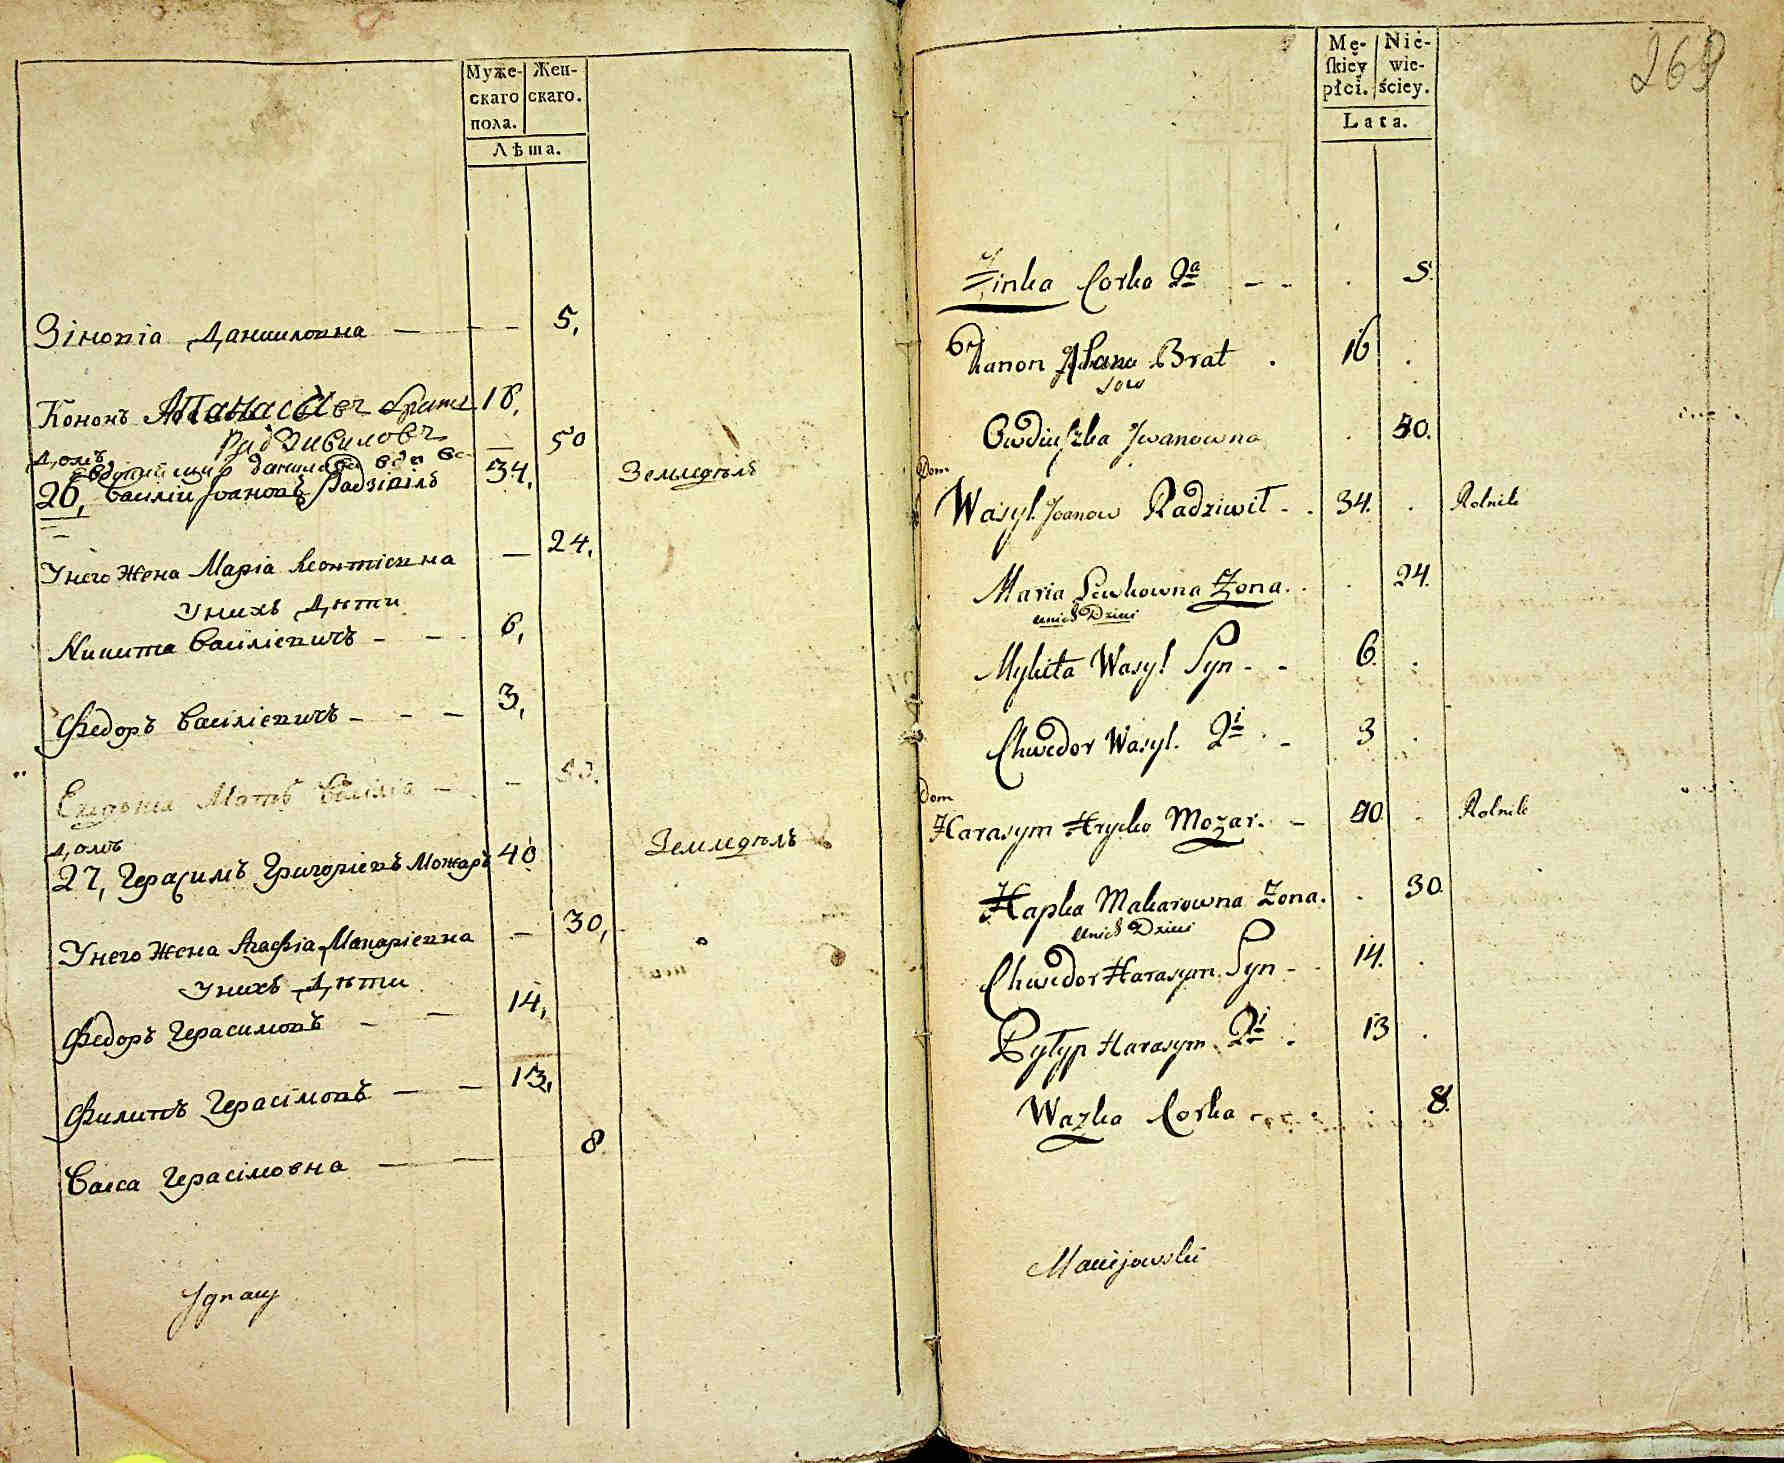 Муже- Жен-
скаго скаго.
пола.
Лѣта.
Зіновіа Даниловна — — — 5,
Кононъ Апанасовъ братъ 18,
Радзивиловъ
домъ — 50
26, Василіи Іоановъ Радзівілъ 34, Земледѣлъ
У него жена Маріа Леонтіевна — 24,
У нихъ дѣти
Никита Василіевичъ — — 6,
Федоръ Василіевичъ — — — 3,
Мать Василіа — — 50.
домъ
27, Герасимъ Григоріевъ Можаръ 40 Земледѣлъ
У него жена Агафіа Макаріевна — 30,
У нихъ дѣти
Федоръ Герасимовъ — — 14,
Филипъ Герасімовъ — — 13,
Васса Герасімовна — — 8.
Ignacy
269
Mę- Nie-
skiey wie-
płci. ściey.
Lata.
Zinka Corka 2a - - . 5.
Hanon Brat . 16 .
Owdiuszka Jwanowna . 50.
Dom
Wasyl Joanow Radziwił - . 34. . Rolnik
Maria Lewkowna Żona . . 24.
unich Dzieci
Mykita Wasyl Syn - - 6. .
Chwedor Wasyl. 2i . - 3 .
Dom
Harasym Hrycko Mozar. - 40 . Rolnik
Hapka Makarowna Żona. . 30.
unich Dzieci
Chwedor Harasym. Syn - . 14. .
Pyłyp Harasym 2i . 13 .
Wazka Corka . 8.
Maciejowski